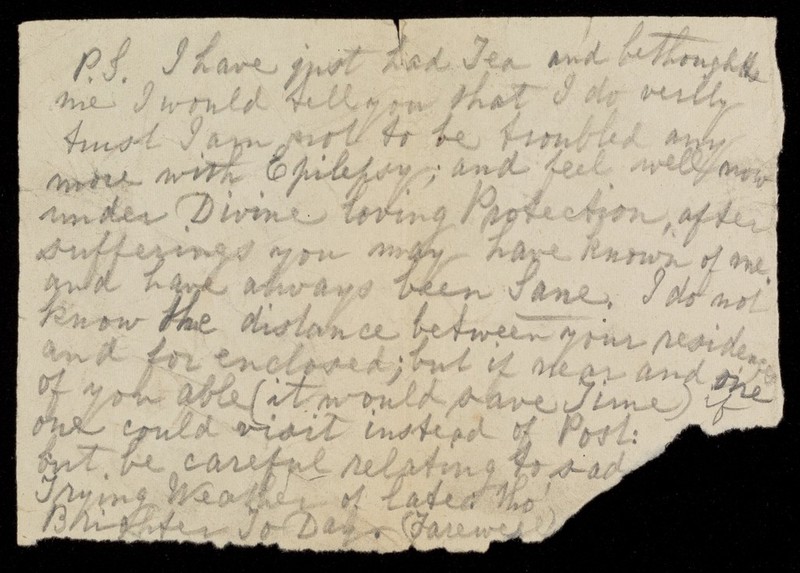 P.S. I have just had Tea and bethought
me I would tell you that I do verily
trust I am not to be troubled any
more with Epilepsy; and feel well now
under Divine loving Protection, after
sufferings you may have known of me.
and have always been Sane. I do not
know the distance between your residences
and for enclosed; but if near and one
of you able (it would save Time) if
one could visit instead of Post:
but be careful relating to sad
Trying Weather of late. tho'
Brighter To Day. (Farewell)